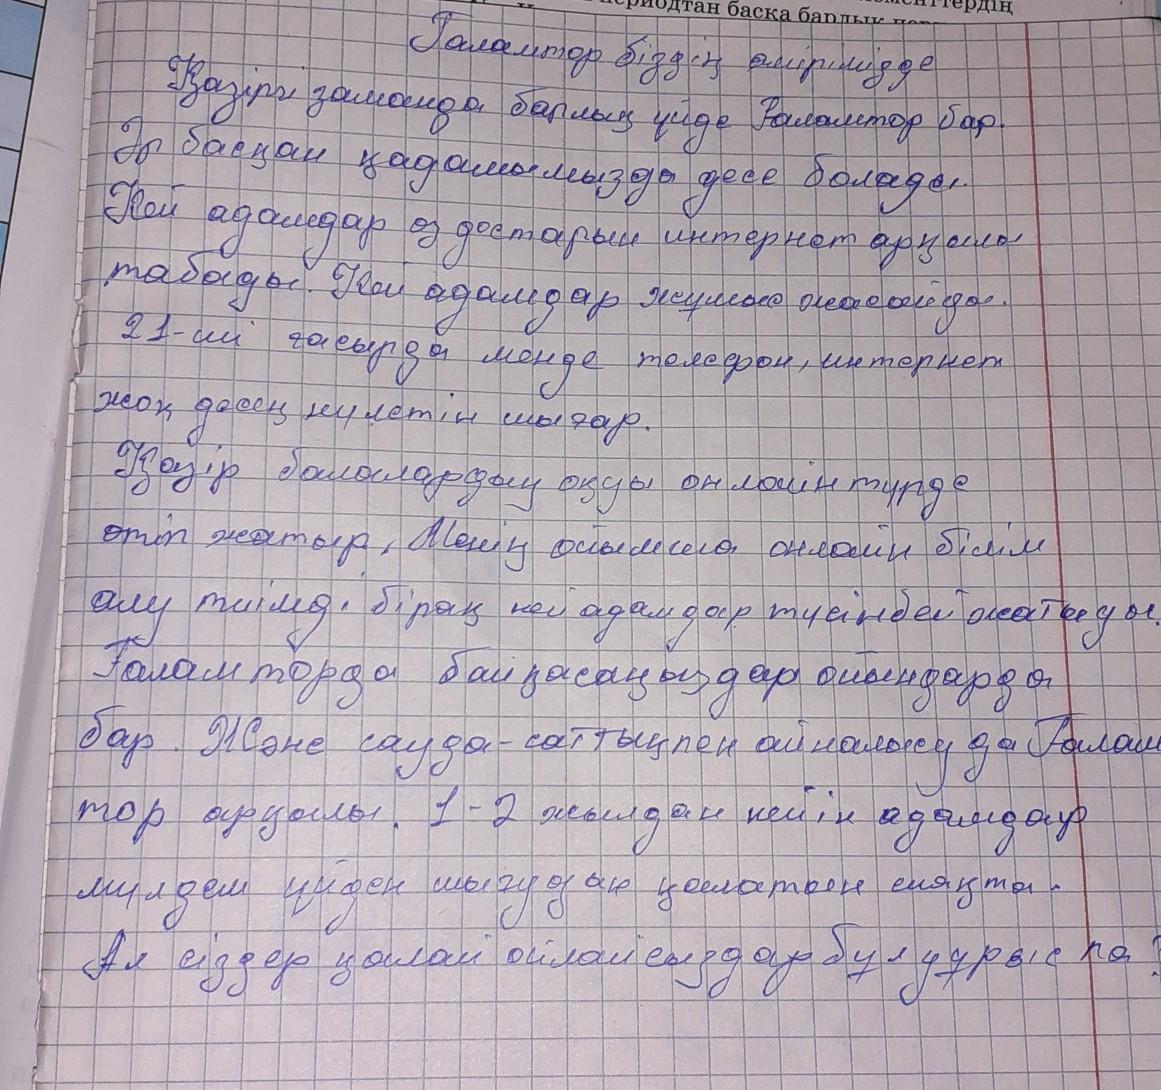 периодтан басқа барлық
Ғаламтор біздің өмірімізде
Қазіргі заманда барлық үйде Ғаламтор бар.
Әр басқан қадамымызда десе болады.
Кей адамдар өз достарын интернет арқылы
табады. Кей адамдар жұмыс жасайды.
21-ші ғасырда менде телефон, интернет
жоқ десең күлетін шығар.
Қазір балалардың оқуы онлайн түрде
өтіп жатыр, Менің ойымша онлайн білім
алу тиімді бірақ кей адамдар түсінбей жатады.
Ғаламторда байқасаңыздар ойындарда
бар. Және сауда-саттықпен айналысу да Ғалам
тор арқылы. 1-2 жылдан кейін адамдар
мүлдем үйден шығудан қалатын сияқты.
Ал сіздер қалай ойлайсыздар бұл дұрыс па?